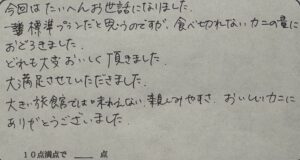 今回はたいへんお世話になりました。
標準プランだと思うのですが、食べ切れないカニの量に
おどろきました。
どれも大変おいしく頂きました。
大満足させていただきました。
大きい旅館では味わえない親しみやすさ、おいしいカニに
ありがとうございました。
10点満点で 点